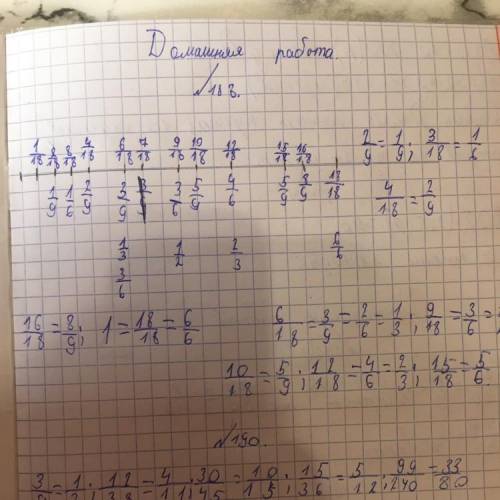 Домашняя работа.
№188.
1/18 2/18 3/18 4/18 6/18 7/18 9/18 10/18 12/18 15/18 16/18
1/9 1/6 2/9 3/9 3/6 5/9 4/6 5/9 8/9 18/18
1/3 1/2 2/3 6/6
3/6
2/9 = 1/9; 3/18 = 1/6
4/18 = 2/9
16/18 = 8/9; 1 = 18/18 = 6/6
6/18 = 3/9 = 2/6 = 1/3; 9/18 = 3/6 =
10/18 = 5/9; 12/18 = 4/6 = 2/3; 15/18 = 5/6
№190.